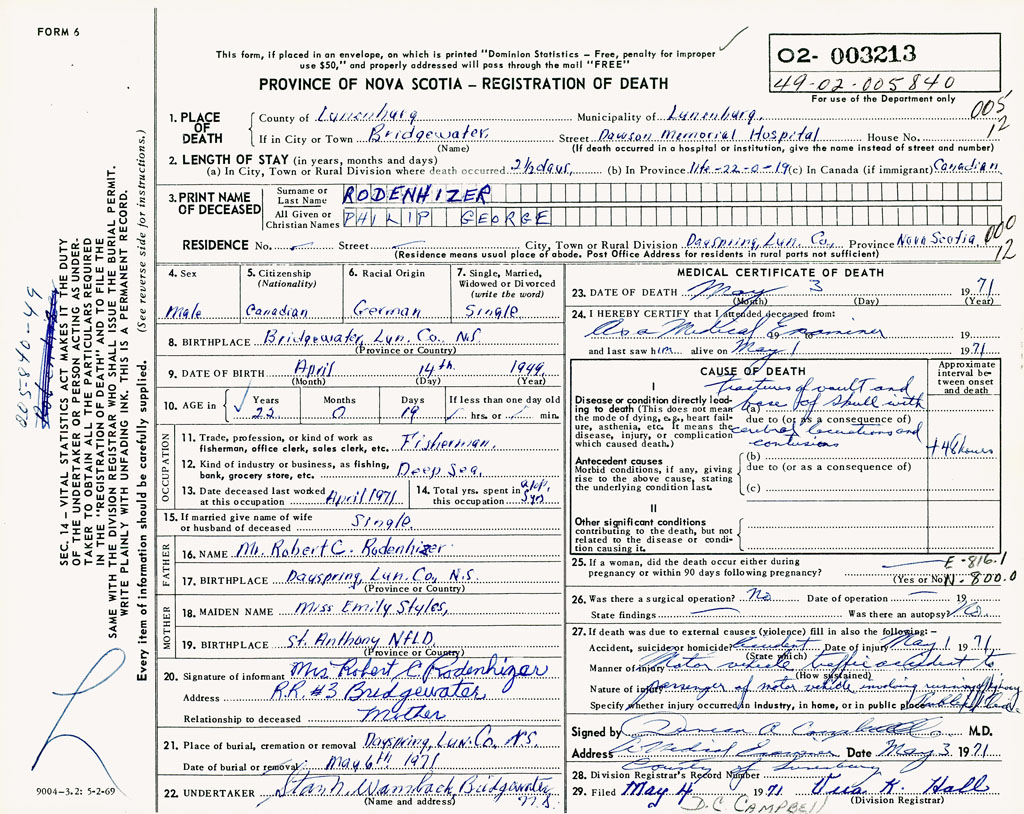 FORM 6
This form, if placed in an envelope, on which is printed "Dominion Statistics – Free, penalty for improper
use $50," and properly addressed will pass through the mail "FREE"
PROVINCE OF NOVA SCOTIA – REGISTRATION OF DEATH
02- 003213
49-02-005840
For use of the Department only
005
12
1. PLACE OF DEATH
County of Lunenburg Municipality of Lunenburg.
If in City or Town Bridgewater, Street Dawson Memorial Hospital House No.
(Name) (If death occurred in a hospital or institution, give the name instead of street and number)
2. LENGTH OF STAY (in years, months and days)
(a) In City, Town or Rural Division where death occurred 2½ days, (b) In Province life-22-0-19 (c) In Canada (if immigrant) Canadian
3. PRINT NAME OF DECEASED
Surname or Last Name RODENHIZER
All Given or Christian Names PHILIP GEORGE
RESIDENCE No. – Street – City, Town or Rural Division Dayspring, Lun. Co., Province Nova Scotia
(Residence means usual place of abode. Post Office Address for residents in rural parts not sufficient)
000
12
4. Sex
Male
5. Citizenship (Nationality)
Canadian
6. Racial Origin
German
7. Single, Married, Widowed or Divorced (write the word)
Single
8. BIRTHPLACE Bridgewater, Lun. Co. N.S.
(Province or Country)
9. DATE OF BIRTH April 14th. 1949
(Month) (Day) (Year)
10. AGE in Years 22 Months 0 Days 19 If less than one day – hrs. or – min.
OCCUPATION
11. Trade, profession, or kind of work as fisherman, office clerk, sales clerk, etc. Fisherman.
12. Kind of industry or business, as fishing, bank, grocery store, etc. Deep Sea.
13. Date deceased last worked at this occupation April 1971
14. Total yrs. spent in this occupation app. 5 yrs
15. If married give name of wife or husband of deceased Single.
FATHER
16. NAME Mr. Robert C. Rodenhizer
17. BIRTHPLACE Dayspring, Lun. Co., N.S.
(Province or Country)
MOTHER
18. MAIDEN NAME Miss Emily Styles,
19. BIRTHPLACE St. Anthony NFLD.
(Province or Country)
20. Signature of informant Mrs Robert C Rodenhizer
Address R.R. #3 Bridgewater
Relationship to deceased Mother
21. Place of burial, cremation or removal Dayspring, Lun. Co, N.S.
Date of burial or removal May 6th 1971
22. UNDERTAKER Stan N. Wamback, Bridgewater N.S.
(Name and address)
MEDICAL CERTIFICATE OF DEATH
23. DATE OF DEATH May 3 1971
(Month) (Day) (Year)
24. I HEREBY CERTIFY that I attended deceased from:
As a Medical Examiner 19 19
and last saw him alive on May 1 1971
CAUSE OF DEATH
Approximate interval between onset and death
I
Disease or condition directly leading to death (This does not mean the mode of dying, e.g., heart failure, asthenia, etc. It means the disease, injury, or complication which caused death.)
(a) fractures of vault and base of skull with
due to (or as a consequence of)
cerebral lacerations and contusions
+48 hours
Antecedent causes
Morbid conditions, if any, giving rise to the above cause, stating the underlying condition last.
(b)
due to (or as a consequence of)
(c)
II
Other significant conditions contributing to the death, but not related to the disease or condition causing it.
25. If a woman, did the death occur either during pregnancy or within 90 days following pregnancy? –
(Yes or No)
E-816.1
N-800.0
26. Was there a surgical operation? No Date of operation – 19
State findings – Was there an autopsy? No
27. If death was due to external causes (violence) fill in also the following: –
Accident, suicide or homicide? Accident Date of injury May 1 1971
(State which)
Manner of injury Motor vehicle traffic accident to
(How sustained)
Nature of injury passenger of motor vehicle involving running highway
Specify whether injury occurred in industry, in home, or in public place Public Place
Signed by Duncan C Campbell M.D.
Address Medical Examiner Date May 3 1971
County of Lunenburg
28. Division Registrar's Record Number
29. Filed May 4 1971 Vera K. Hall
(Division Registrar)
D.C CAMPBELL
SEC. 14 – VITAL STATISTICS ACT MAKES IT THE DUTY
OF THE UNDERTAKER OR PERSON ACTING AS UNDER-
TAKER TO OBTAIN ALL THE PARTICULARS REQUIRED
IN THE "REGISTRATION OF DEATH" AND TO FILE THE
SAME WITH THE DIVISION REGISTRAR WHO SHALL ISSUE THE BURIAL PERMIT.
WRITE PLAINLY WITH UNFADING INK. THIS IS A PERMANENT RECORD.
Every item of information should be carefully supplied. (See reverse side for instructions.)
005-840-49
9004-3.2: 5-2-69